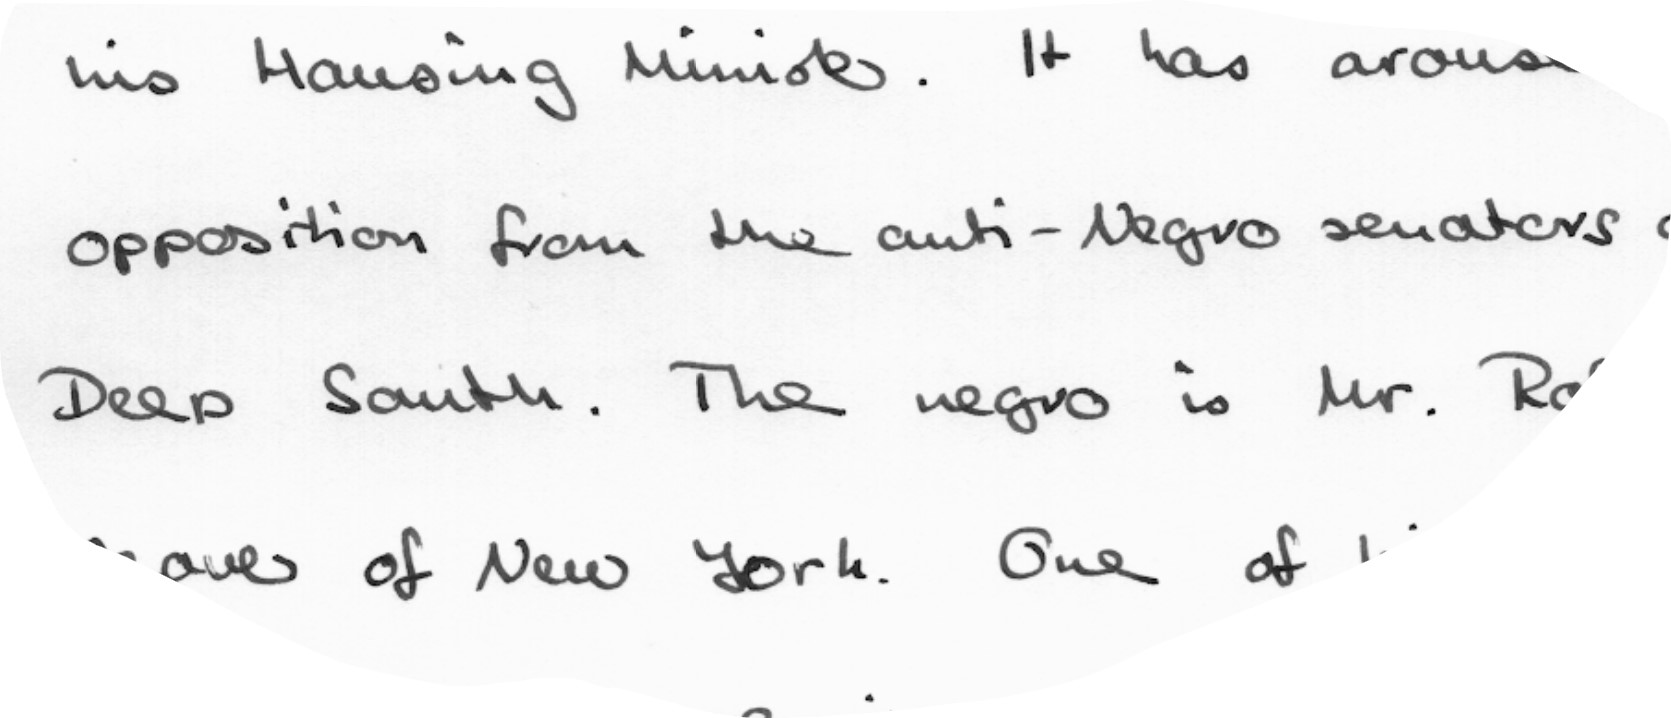 his Housing Minister. It has
opposition from the anti-Negro senators
Deep South. The negro is Mr.
of New York. One of